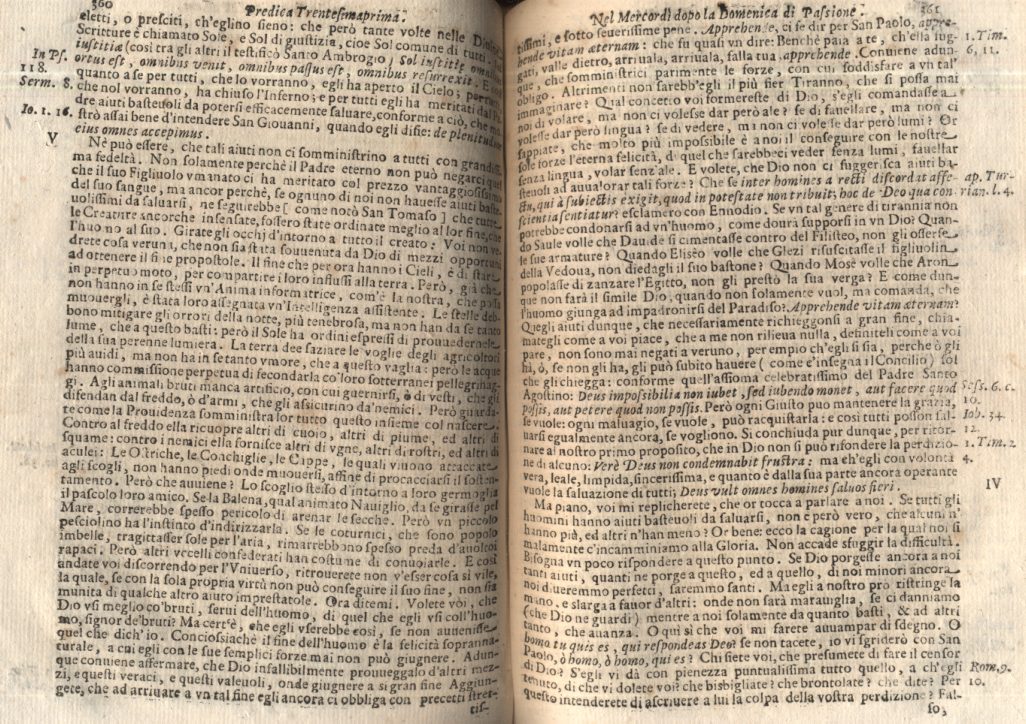 360 Predica Trentesimaprima.
eletti, o presciti, ch'eglino sieno: che però tante volte nelle Diuine
Scritture è chiamato Sole, e Sol di giustizia, cioè Sol comune di tutti. Sol
iustitiæ (così tra gli altri il testificò Santo Ambrogio) Sol iustitiæ omnibus
In Ps. 118. Serm. 8.
ortus est, omnibus venit, omnibus passus est, omnibus resurrexit. E
quanto a se per tutti, che lo vorranno, egli ha aperto il Cielo; per tutti,
che nol vorranno, ha chiuso l'Inferno; e per tutti egli ha meritati dal Padre
aiuti basteuoli da potersi efficacemente saluare, conforme a ciò, che
Io. 1. 16.
strò assai bene d'intendere San Giouanni, quando egli disse: de plenitudine
eius omnes accepimus.
V
Nè può essere, che tali aiuti non ci somministrino a tutti con grandissima
fedeltà. Non solamente perchè il Padre eterno non può negarci quel
che il suo Figliuolo vmanato ci ha meritato col prezzo vantaggiosissimo
del suo sangue, ma ancor perchè, se ognuno di noi non hauesse aiuti basteuolissimi
da saluarsi, ne seguirebbe [come notò San Tomaso] che tutte
le Creature ancorche insensate, fossero state ordinate meglio al lor fine, che
l'huomo al suo. Girate gli occhi d'intorno a tutto il creato: Voi non vedrete
cosa veruna, che non sia stata souuenuta da Dio di mezzi opportuni
ad ottenere il fine propostole. Il fine che per ora hanno i Cieli, è di stare
in perpetuo moto, per compartire i loro influssi alla terra. Però, già che
non hanno in se stessi vn'Anima informatrice, com'è la nostra, che possa
muouergli, è stata loro assegnata vn'Intelligenza assistente. Le stelle debbono
mitigare gli orrori della notte, più tenebrosa, ma non han da se tanto
lume, che a questo basti: però il Sole ha ordini espressi di prouuedernele
della sua perenne lumiera. La terra dee saziare le voglie degli agricoltori
più auidi, ma non ha in se tanto vmore, che a questo vaglia: però le acque
hanno commissione perpetua di fecondarla co' loro sotterranei pellegrinaggi.
Agli animali bruti manca artificio, con cui guernirsi, o di vesti, che gli
difendan dal freddo, o d'armi, che gli assicurino da'nemici. Però guardate
come la Prouidenza somministra lor tutto questo insieme col nascere.
Contro al freddo ella ricuopre altri di cuoio, altri di piume, ed altri di
squame: contro i nemici ella fornisce altri di vgne, altri di rostri, ed altri di
aculei: Le Ostriche, le Conchiglie, le Cappe, le quali viuono attaccate
agli scogli, non hanno piedi onde muouersi, affine di procacciarsi il sostentamento.
Però che auuiene? Lo scoglio stesso d'intorno a loro germoglia
il pascolo loro amico. Se la Balena, qual animato Nauiglio, da se girasse pel
Mare, correrebbe spesso pericolo di arenar le secche. Però vn piccolo
pesciolino ha l'instinto d'indirizzarla. Se le coturnici, che sono popolo
imbelle, tragittasser sole per l'aria, rimarrebbono spesso preda d'auoltoi
rapaci. Però altri vccelli confederati han costume di conuoiarle. E così
andate voi discorrendo per l'Vniuerso, ritrouerete non v'esser cosa sì vile,
la quale, se con la sola propria virtù non può conseguire il suo fine, non sia
munita di qualche altro aiuto imprestatole. Ora ditemi. Volete voi, che
Dio vsi meglio co'bruti, serui dell'huomo, di quel che egli vsi coll'huomo,
signor de'bruti? Ma cert'è, che egli vserebbe così, se non auuenisse
quel che dich'io. Conciossiachè il fine dell'huomo è la felicità soprannaturale,
a cui egli con le sue semplici forze mai non può giugnere. Adunque
conuiene affermare, che Dio infallibilmente prouueggalo d'altri mezzi,
e questi veraci, e questi valeuoli, onde giugnere a sì gran fine. Aggiungete,
che ad arriuare a vn tal fine egli ancora ci obbliga con precetti strettis-
Nel Mercordì dopo la Domenica di Passione. 361
tissimi, e sotto seuerissime pene. Apprehende, ci fe dir per San Paolo, apprehende
1. Tim. 6, 12.
vitam æternam: che fu quasi vn dire: Benchè paia a te, ch'ella fuggati,
valle dietro, arriuala, arriuala, falla tua, apprehende. Conuiene adunque,
che somministrici parimente le forze, con cui soddisfare a vn tal'
obligo. Altrimenti non sarebb'egli il più fier Tiranno, che si possa mai
immaginare? Qual concetto voi formereste di Dio, s'egli comandasse a
noi di volare, ma non ci volesse dar però ale? se di fauellare, ma non ci
volesse dar però lingua? se di vedere, ma non ci volesse dar però lumi? Or
sappiate, che molto più impossibile è a noi il conseguire con le nostre
sole forze l'eterna felicità, di quel che sarebbeci veder senza lumi, fauellar
senza lingua, volar senz'ale. E volete, che Dio non ci suggerisca aiuti basteuoli
ad auualorar tali forze? Che se inter homines a recti discordat affectu,
ap. Turrian. l. 4.
qui à subiectis exigit, quod in potestate non tribuit; hoc de Deo qua conscientia
sentiatur? esclamerò con Ennodio. Se vn tal genere di tirannia non
potrebbe condonarsi ad vn'huomo, come dourà supporsi in vn Dio? Quando
Saule volle che Dauide si cimentasse contro del Filisteo, non gli offerse
le sue armature? Quando Eliseo volle che Giezi risuscitasse il figliuolin
della Vedoua, non diedagli il suo bastone? Quando Mosè volle che Aron
popolasse di zanzare l'Egitto, non gli prestò la sua verga? E come dunque
non farà il simile Dio, quando non solamente vuol, ma comanda, che
l'huomo giunga ad impadronirsi del Paradiso? Apprehende vitam æternam?
Quegli aiuti dunque, che necessariamente richieggonsi a gran fine, chiamategli
come a voi piace, che a me non rilieua nulla, definiteli come a voi
pare, non sono mai negati a veruno, per empio ch'egli si sia, perche ò gli
hà, ò, se non gli ha, gli può subito hauere (come c'insegna il Concilio) sol
che gli chiegga: conforme quell'assioma celebratissimo del Padre Santo
Agostino: Deus impossibilia non iubet, sed iubendo monet, aut facere quod
Sess. 6. c. 10.
possis, aut petere quod non possis. Però ogni Giusto può mantenere la grazia,
Iob. 34. 12.
se vuole: ogni maluagio, se vuole, può racquistarla: e così tutti posson saluarsi
egualmente ancora, se vogliono. Si conchiuda pur dunque, per ritornare
1. Tim. 2. 4.
al nostro primo proposito, che in Dio non si può rifondere la perdizione
di alcuno: Verè Deus non condemnabit frustra: ma ch'egli con volontà
vera, leale, limpida, sincerissima, e quanto è dalla sua parte ancora operante
vuole la saluazione di tutti; Deus vult omnes homines saluos fieri.
IV
Ma piano, voi mi replicherete, che or tocca a parlare a noi. Se tutti gli
huomini hanno aiuti basteuoli da saluarsi, non è però vero, che alcuni n'
hanno più, ed altri n'han meno? Or bene: ecco la cagione per la qual noi sì
malamente c'incamminiamo alla Gloria. Non accade sfuggir la difficultà.
Bisogna vn poco rispondere a questo punto. Se Dio porgesse ancora a noi
tanti aiuti, quanti ne porge a questo, ed a quello, di noi minori ancora
noi diueremmo perfetti, saremmo santi. Ma egli a nostro prò ristringe la
mano, e slarga a fauor d'altri: onde non sarà marauiglia, se ci danniamo
(che Dio ne guardi) mentre a noi solamente da quanto basti, & ad altri
tanto, che auanza. O quì sì che voi mi farete auuampar di sdegno. O
homo tu quis es, qui respondeas Deo? se non tacete, io vi sgriderò con San
Paolo, ò homo, ò homo, qui es? Chi siete voi, che presumete di fare il censor
Rom. 9. 10.
di Dio? S'egli vi dà con pienezza puntualissima tutto quello, a ch'egli è
tenuto, di che vi dolete voi? che bisbigliate? che brontolate? che dite? Per
questo intenderete di ascriuere a lui la colpa della vostra perdizione? Falso,